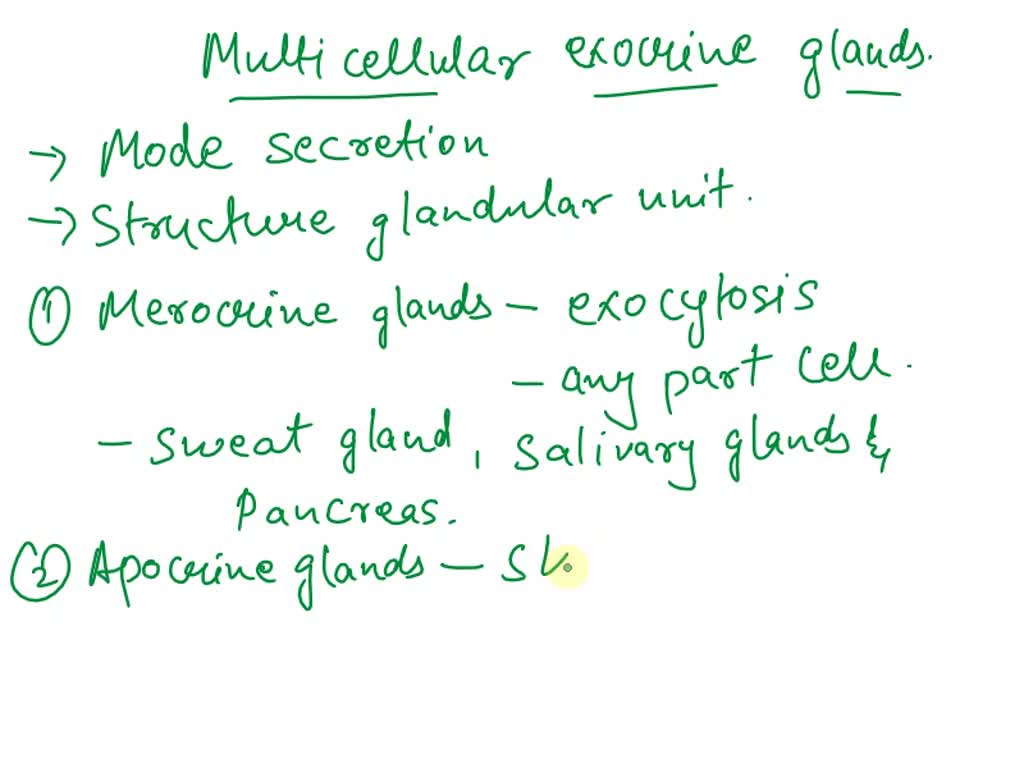 Multicellular exocrine glands.
→ Mode secretion
→ Structure glandular unit.
① Merocrine glands - exocytosis
- any part cell.
- sweat gland, salivary glands &
Pancreas.
② Apocrine glands -